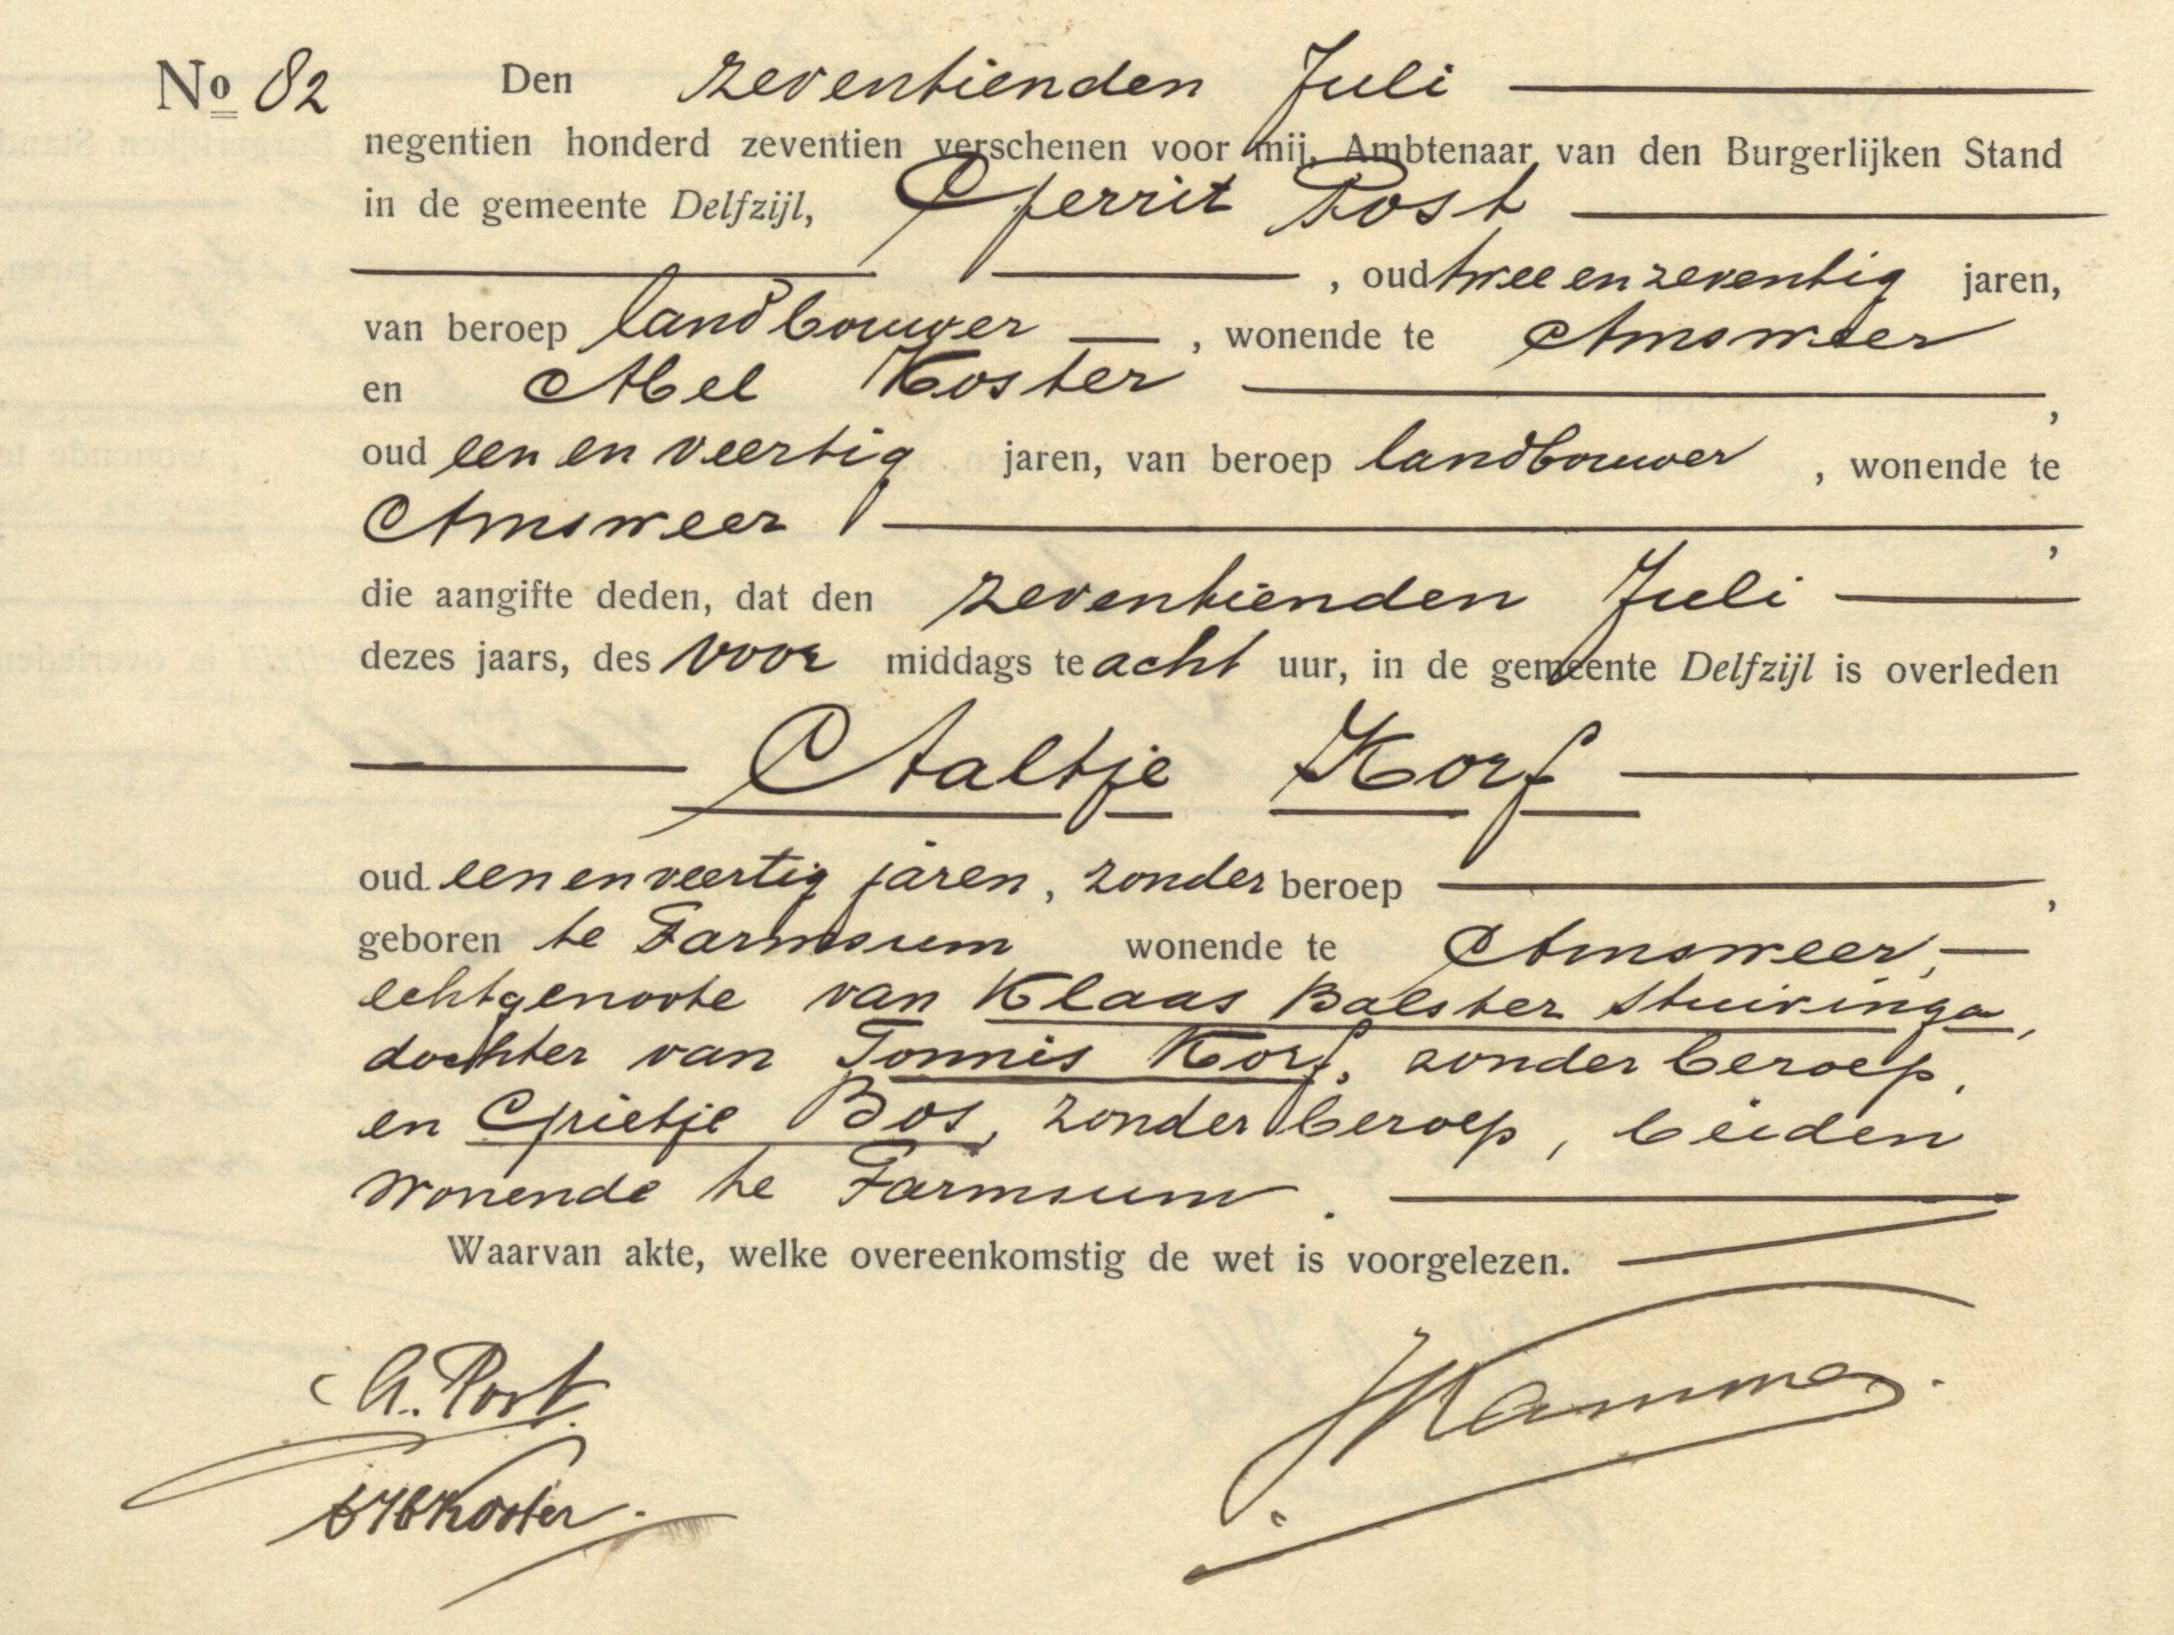 No 82 Den zeventienden Juli
negentien honderd zeventien verschenen voor mij, Ambtenaar van den Burgerlijken Stand
in de gemeente Delfzijl, Gerrit Post
, oud twee en zeventig jaren,
van beroep landbouwer , wonende te Amsweer
en Abel Koster ,
oud een en veertig jaren, van beroep landbouwer , wonende te
Amsweer ,
die aangifte deden, dat den zeventienden Juli
dezes jaars, des voor middags te acht uur, in de gemeente Delfzijl is overleden
Aaltje Korf
oud een en veertig jaren, zonder beroep ,
geboren te Farmsum wonende te Amsweer,
echtgenoote van Klaas Balster Stuivinga,
dochter van Tonnis Korf, zonder beroep,
en Grietje Bos, zonder beroep, beiden
wonende te Farmsum.
Waarvan akte, welke overeenkomstig de wet is voorgelezen.
G. Post
Koster